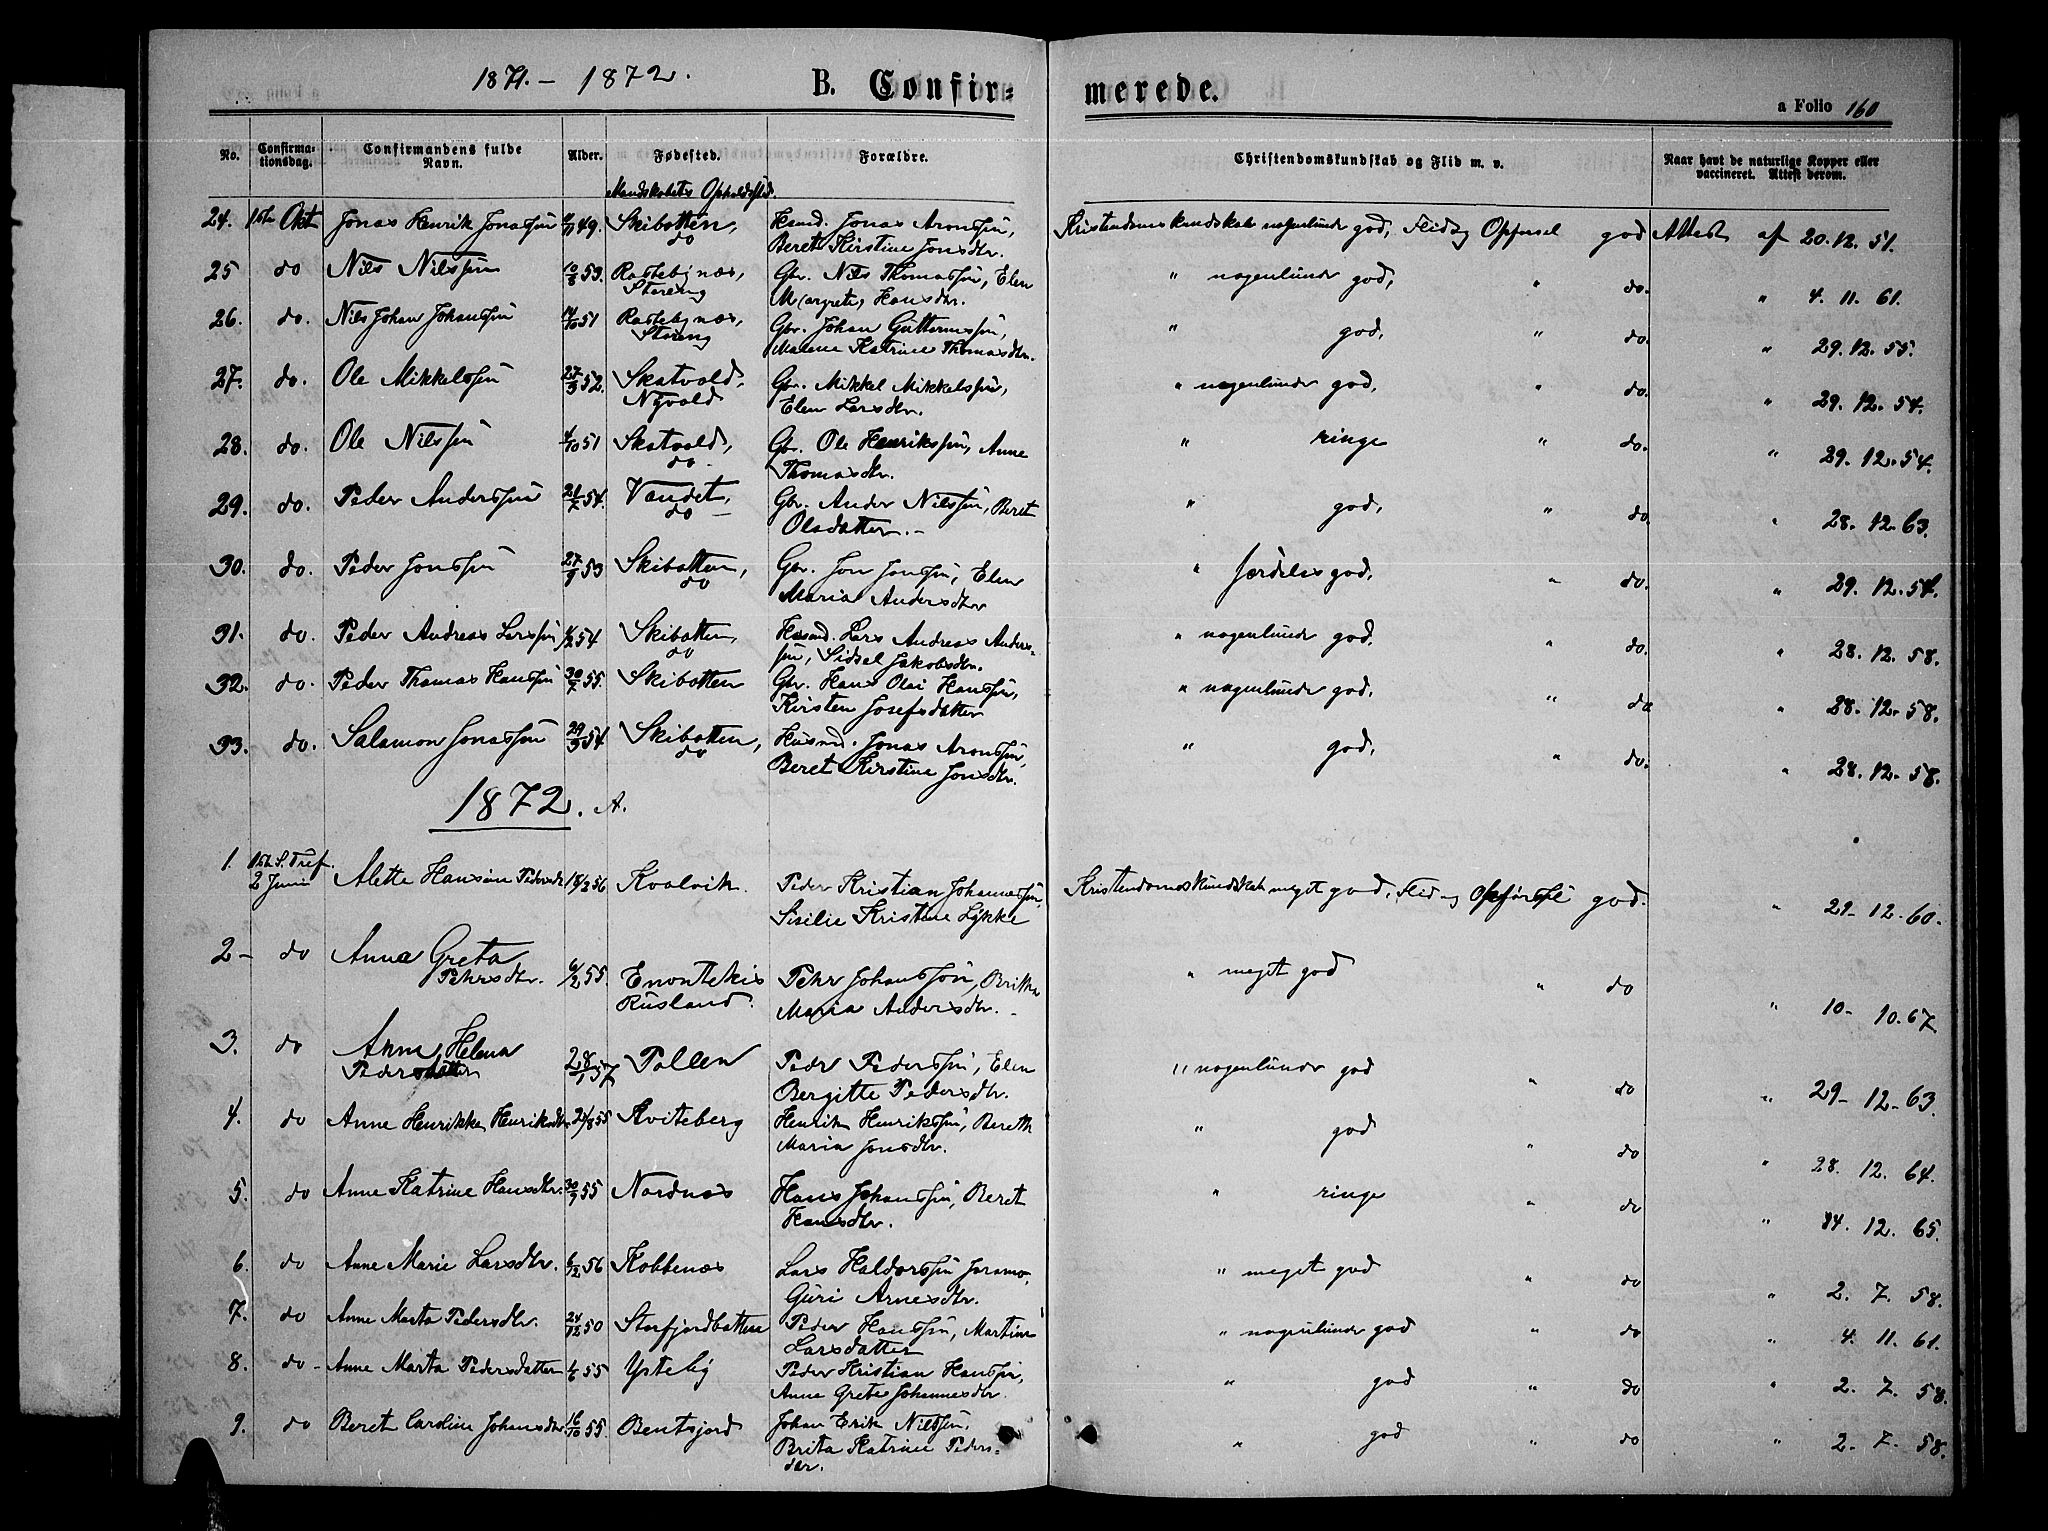 1871.- 1872. B. Confir= merede.
a Folio 160
No. Confirma-tionsdag. Confirmandens fulde Navn. Alder. Fødested. Forældre. Christendomskundskab og Flid m. v. Naar havt de naturlige Kopper eller vaccineret. Attest derom.
Mandskabets Opholdssted.
24. 1ste Okt Jonas Henrik Jonassøn 49. Skibotten, Husmd. Jonas Aronssøn, Kristendomskundskab nogenlunde god, Flid og Opførsel god Attest af 20.12.51.
do Beret Kirstine Jonsdtr.
25 do Nils Nilssøn 10/8 53. Rastebynæs, Gbr. Nils Thomassøn, Elen " nogenlunde god, " do. " 4. 11. 61.
Storeng M(argrete) Hansdtr.
26. do. Nils Johan Johanssøn 14/10 51 Rastebynæs, Gbr. Johan Guttormssøn, " god, " do. " 29.12.55.
Storeng Malene Katrine Thomasdtr.
27. do. Ole Mikkelssøn 27/3 52. Skatvold, Gbr. Mikkel Mikkelssøn, " nogenlunde god, " do. " 29.12.54.
Nyvold Elen Larsdtr.
28. do. Ole Nilssøn 4/10 51 Skatvold, Gbr. Ole Henrikssøn, Anne " ringe " do. " 29.12.54.
do. Thomasdtr.
29. do. Peder Anderssøn 21/7 54. Vandet, Gbr. Ander Nilssøn, Beret " god, " do. " 28.12.63.
do Olsdatter.
30. do. Peder Jonssøn 27/9 53 Skibotten, Gbr. Jon Jonssøn, Elen " særdeles god, " do. " 29.12.54.
do Maria Andersdtr
31. do. Peder Andreas Larssøn 1/2 54 Skibotten, Husmd. Lars Andreas Anders- " nogenlunde god, " do. " 28.12.58.
do søn, Sidsel Jakobsdtr.
32. do. Peder Thomas Hanssøn 30/7 55. Skibotten Gbr. Hans Olai Hanssøn, " nogenlunde god, " do " 28.12.58.
Kirsten Josefsdatter
33. do. Salamon Jonassøn 29/3 54. Skibotten, Husmd. Jonas Aronssøn, " god, " do. " 28.12.58.
do Beret Kirstine Jonsdtr.
1872. A.
1. 1ste S. Tref. 2 Juni Alette Hansine Pedersdtr 18/2 56 Kvalvik. Peder Kristian Johannessøn, Kristendomskundskab meget god, Flid og Opførsel god. " 29-12.60.
Sisilie Kristine Lykke
2- do Anna Greta
Pehrsdtr. 6/2 55. Enontekis Pehr Johanssøn, Britha " meget god " do " 10-10.67
Rusland. Maria Andersdtr.
3. do Anne Helena 28/1 57 Pollen Peder Pederssøn, Elen " nogenlunde god " do " 29-12-63.
Pedersdatter Bergitte Pedersdtr.
4. do Anne Henrikke Henriksdtr. 2/8 55 Kviteberg Henrik Henrikssøn, Bereth " god " do " 28. 12. 64.
Maria Jonsdtr.
5. do Anne Katrine Hansdtr. 30/9 55 Nordnæs Hans Johanssøn, Beret " ringe " do " 14. 12. 65.
Hansdtr.
6. do Anne Marie Larsdtr. 6/12 56 Kobbenæs Lars Haldorssøn Joramo, " meget god " do " 2. 7. 58.
Guri Arnesdtr.
7. do Anne Marta Pedersdtr. 24/12 50 Storfjordbotten Peder Hanssøn, Martine " nogenlunde god " do " 4. 11. 61.
Larsdatter
8. do- Anne Marta Pedersdatter 55 Ysteby Peder Kristian Hanssøn, " god " do " 2. 7. 58.
Anne Grete Johannesdtr.
9. do Beret Caroline Johansdtr 16/10 55. Bentsjord Johan Erik Nilssøn, " god " do " 2. 7. 58.
Brita Katrine Peders-
dtr.